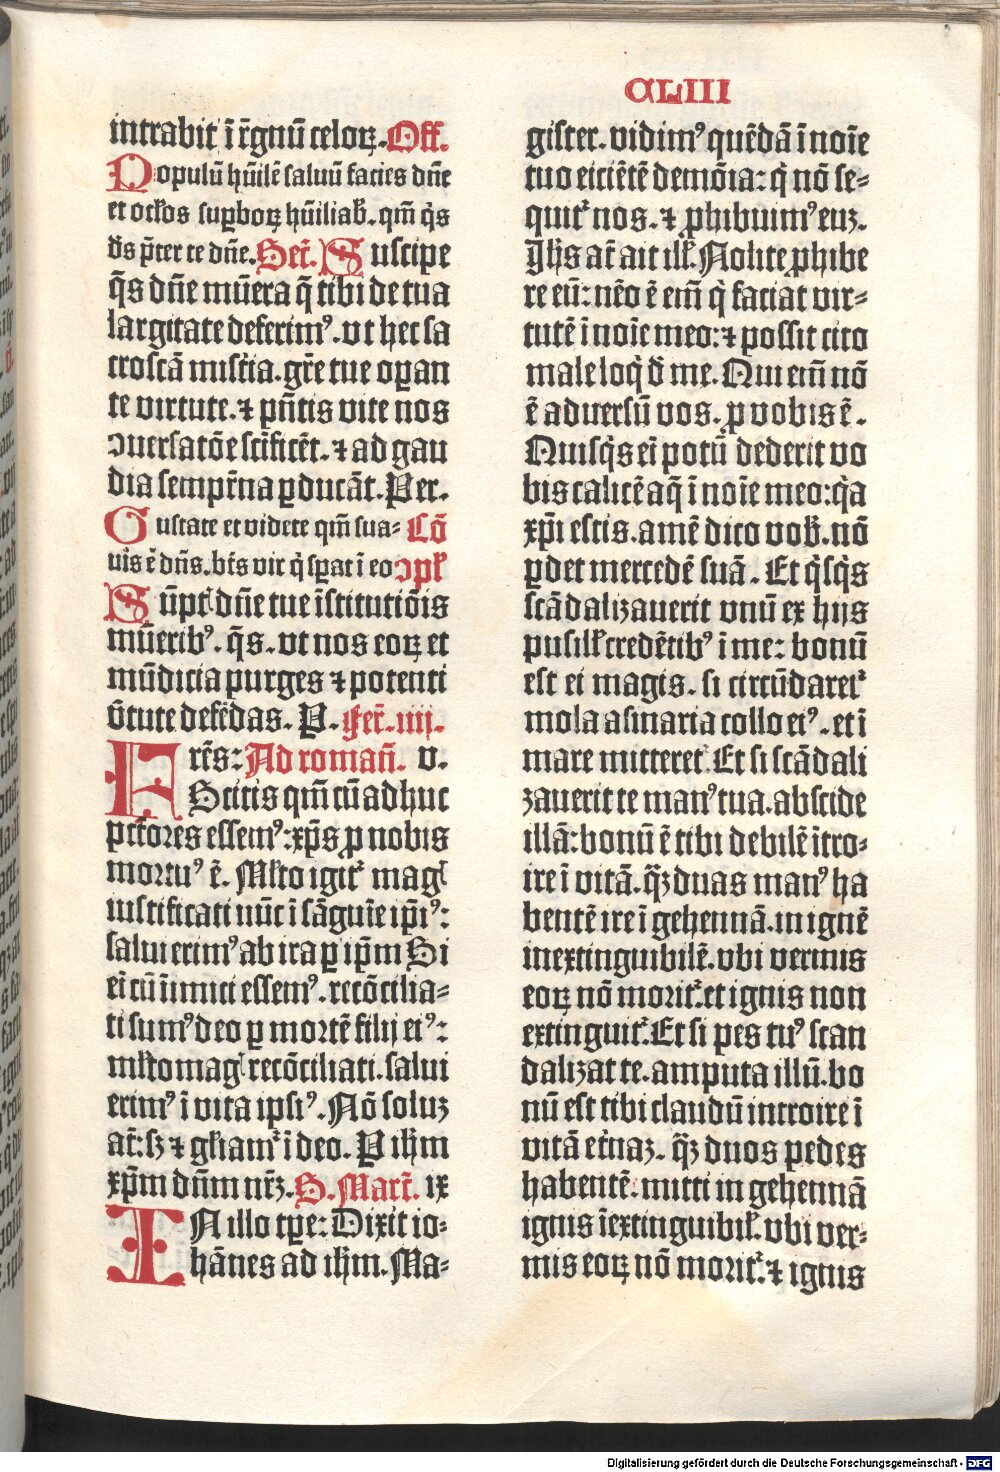 CLIII
intrabit ī rͤgnū celoꝝ. Off.
Populū hūilē saluū facies dn̄e
et oclͦos suꝑboꝝ hūiliab̄. qm̄ qͥs
ds̄ p̄ter te dn̄e. Secͬ. Suscipe
q̄s dn̄e mūera q̄ tibi de tua
largitate deferimꝰ. vt hec sa
crosctā mist̄ia. gr̄e tue oꝑan
te virtute. ⁊ pn̄tis vite nos
ꝯuersatōe sctīficēt. ⁊ ad gau
dia sempit̄na ꝑducāt. Per.
Gustate et videte qm̄ sua-
uis ē dn̄s. bt̄s vir qͥ sꝑat ī eo
Cō
ꝯpl̄
Sūptͥ dn̄e tue īstitutiōis
mūeribꝰ. q̄s. vt nos eoꝝ et
mūdicia purges ⁊ potenti
v̄tute defēdas. P. Fer̄. iiij.
Fr̄es: Ad roman̄. v.
Scitis qm̄ cū adhuc
pctōres essemꝰ: xp̄s ꝓ nobis
mortuꝰ ē. Ml̄to igitͬ magͥ
iustificati nūc ī sāguīe ip̄iꝰ:
salui erimꝰ ab ira ꝑ ip̄m Si
eī cū inimici essemꝰ. recōcilia-
ti sumꝰ deo ꝑ mortē filij eiꝰ:
ml̄to magͥ recōciliati. salui
erimꝰ ī vita ipsiꝰ. Nō soluꝫ
at̄: sꝫ ⁊ gl̄iamͬ ī deo. P ihm̄
xp̄m dn̄m nr̄ꝫ. S. Marc̄. ix
IN illo tꝑe: Dixit io-
hānes ad ihm̄. Ma-
gister. vidimꝰ quēdā ī noīe
tuo eiciētē demōia: qͥ nō se-
quitͬ nos. ⁊ ꝓhibuimꝰ euꝫ.
Jhs̄ at̄ ait ill̄. Nolite ꝓhibe
re eū: nēo ē em̄ qͥ faciat vir-
tutē ī noīe meo: ⁊ possit cito
male loqͥ d̄ me. Qui em̄ nō
ē aduersū vos. ꝓ vobis ē.
Quisqͥs eī potū dederit vo
bis calicē aq̄ ī noīe meo: qͥa
xp̄i estis. amē dico vob̄. nō
ꝑdet mercedē suā. Et qͥsqͥs
scādalizauerit vnū ex hijs
pusill̄ credētibꝰ ī me: bonū
est ei magis. si circūdaretͬ
mola asinaria collo eiꝰ. et ī
mare mitteretͬ. Et si scādali
zauerit te manꝰ tua. abscide
illā: bonū ē tibi debilē ītro-
ire ī vitā. qͣꝫ duas manꝰ ha
bentē ire ī gehennā. in ignē
inextinguibilē. vbi vermis
eoꝝ nō moritͬ. et ignis non
extinguitͬ. Et si pes tuꝰ scan
dalizat te. amputa illū. bo
nū est tibi claudū introire ī
vitā et̄naꝫ. qͣꝫ duos pedes
habentē. mitti in gehennā
ignis īextinguibil̄. vbi ver-
mis eoꝝ nō moritͬ. ⁊ ignis
Digitalisierung gefördert durch die Deutsche Forschungsgemeinschaft - DFG